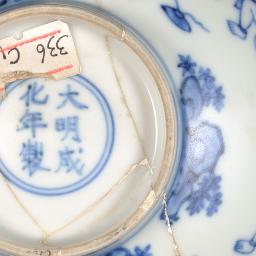 336
大明成
化年製